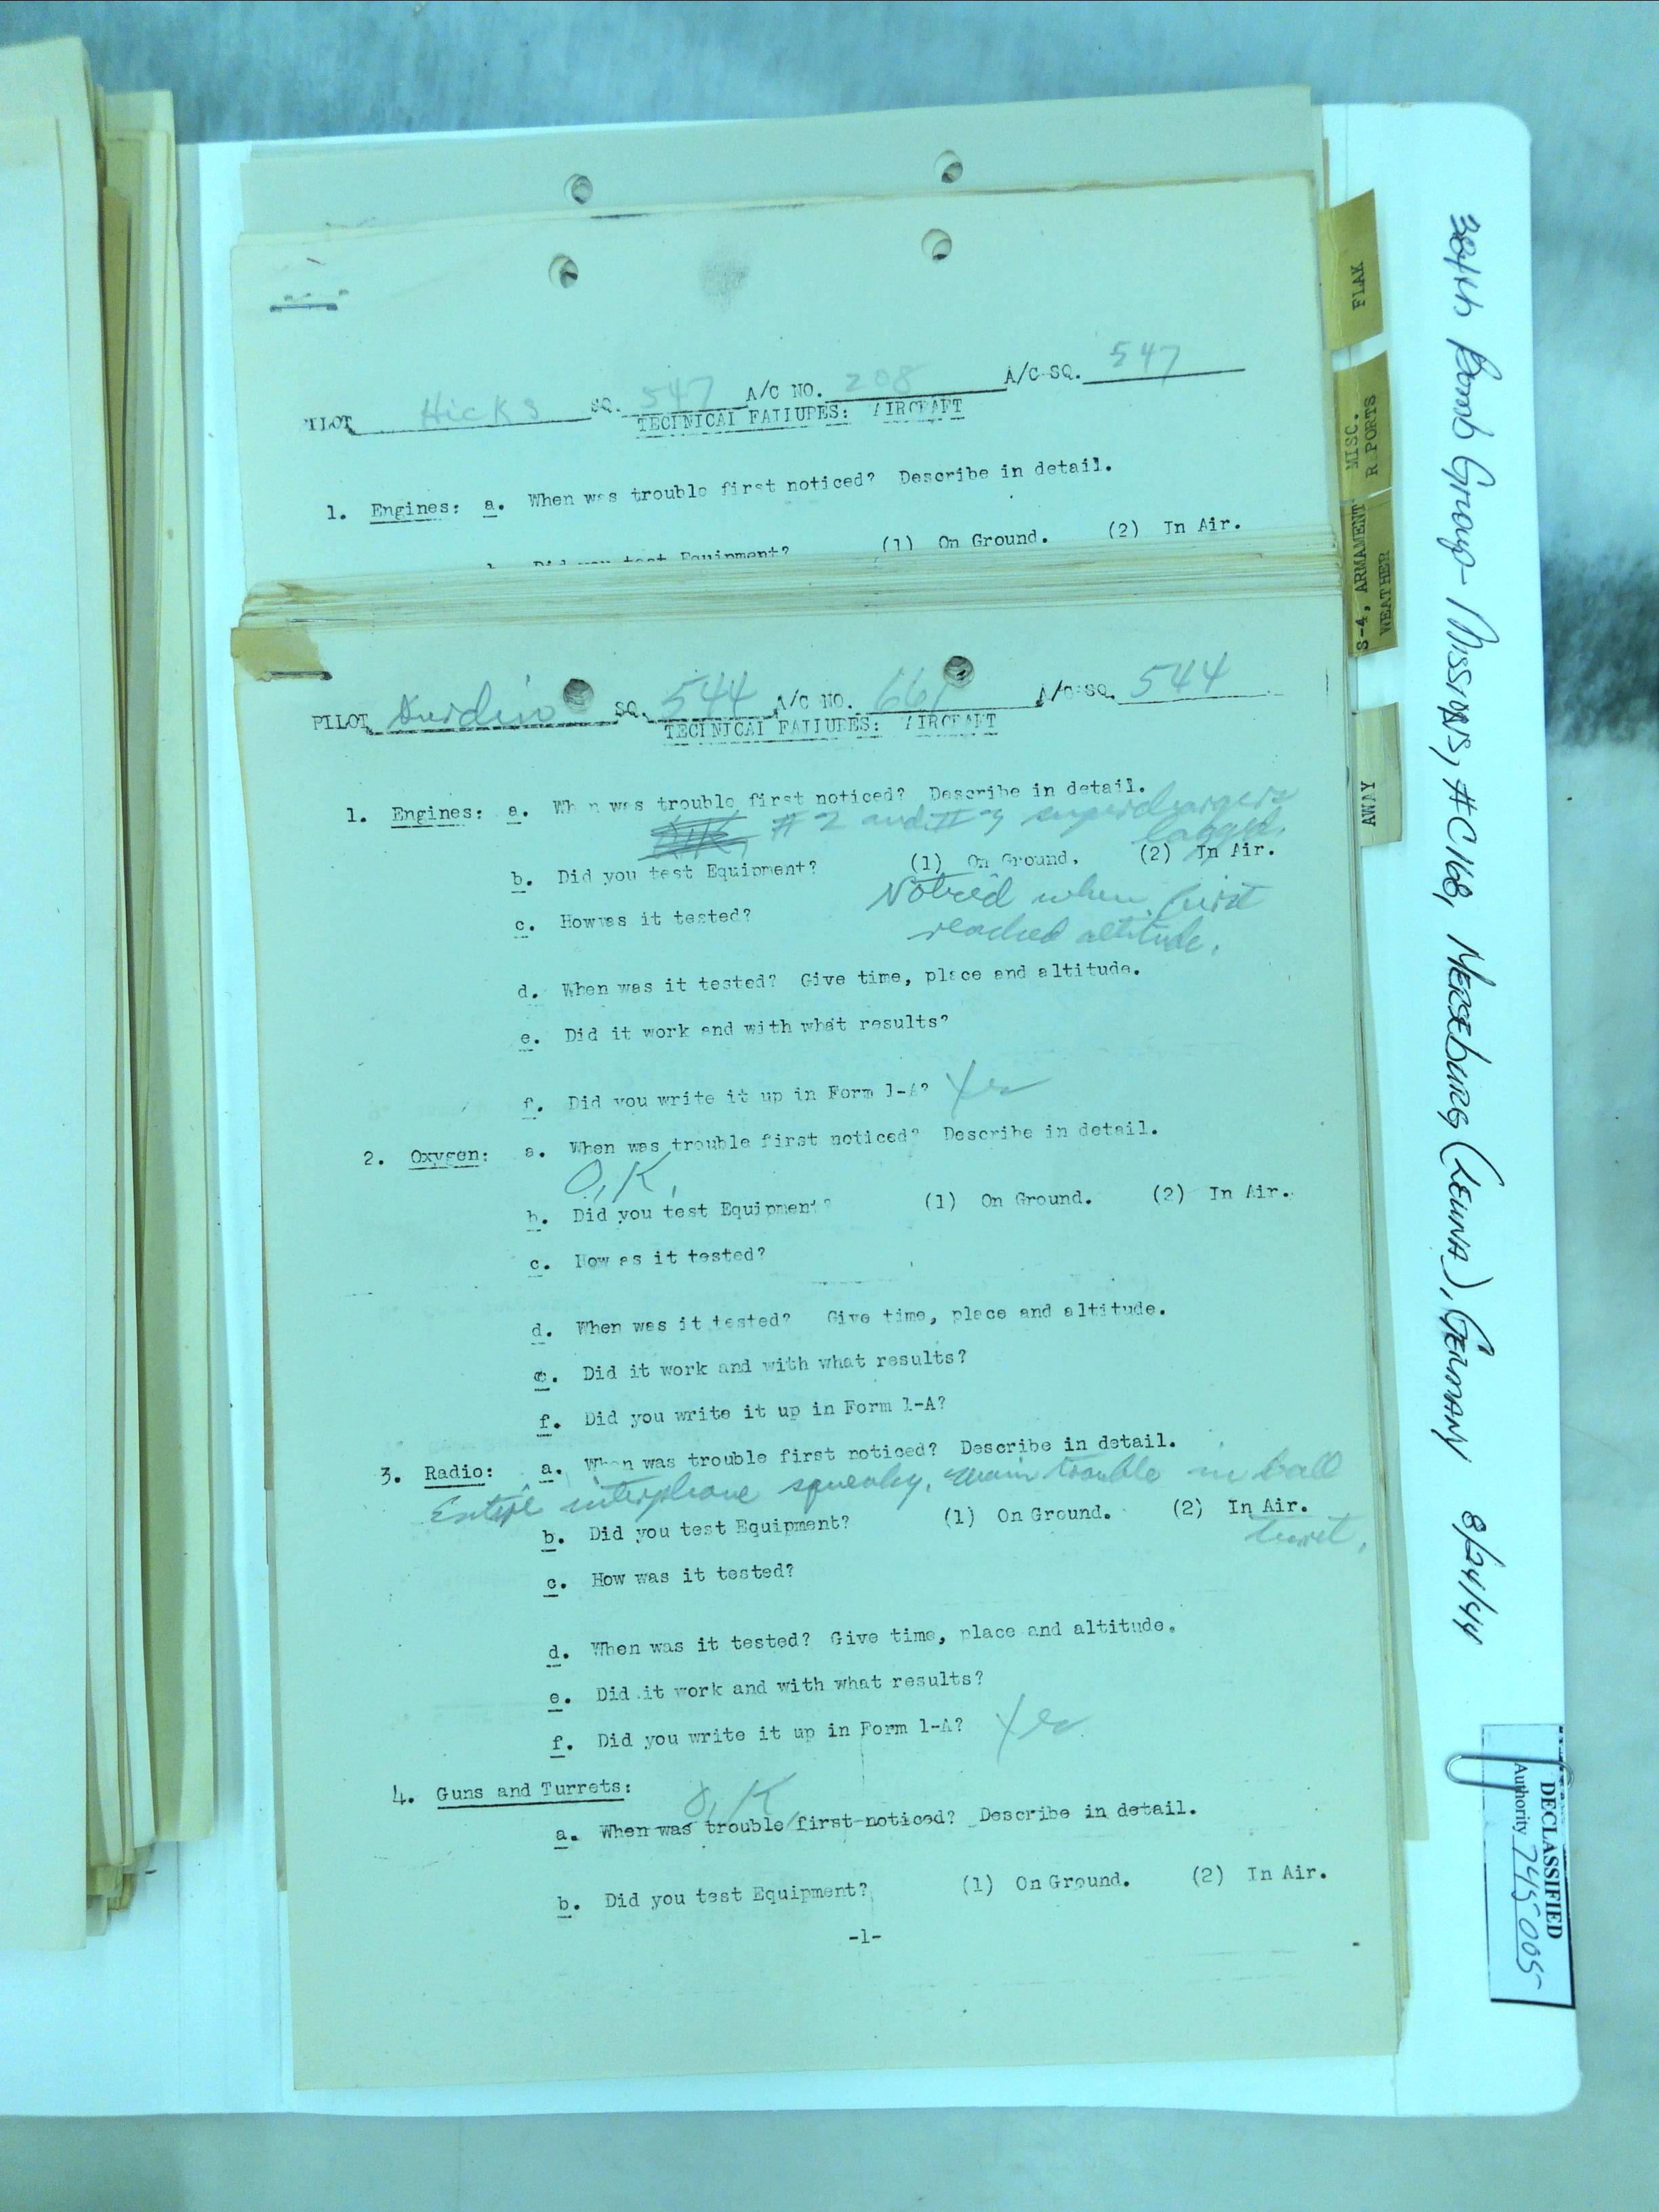 PILOT Hicks SQ. 547 A/C NO. 208 A/C SQ. 547
TECHNICAL FAILURES: AIRCRAFT
1. Engines: a. When was trouble first noticed? Describe in detail.
Did you test Equipment? (1) On Ground. (2) In Air.
PILOT SQ. 544 A/C NO. 661 A/C SQ. 544
TECHNICAL FAILURES: AIRCRAFT
1. Engines: a. When was trouble first noticed? Describe in detail.
#2 and #3 superchargers
lagged.
b. Did you test Equipment? (1) On Ground. (2) In Air.
Noticed when first
c. How was it tested?
reached altitude.
d. When was it tested? Give time, place and altitude.
e. Did it work and with what results?
f. Did you write it up in Form 1-A? Yes
2. Oxygen: a. When was trouble first noticed? Describe in detail.
O.K.
b. Did you test Equipment? (1) On Ground. (2) In Air.
c. How as it tested?
d. When was it tested? Give time, place and altitude.
e. Did it work and with what results?
f. Did you write it up in Form 1-A?
3. Radio: a. When was trouble first noticed? Describe in detail.
Entire interphone squeaky, main trouble in ball
b. Did you test Equipment? (1) On Ground. (2) In Air.
turret.
c. How was it tested?
d. When was it tested? Give time, place and altitude.
e. Did it work and with what results?
f. Did you write it up in Form 1-A? Yes
4. Guns and Turrets:
O.K.
a. When was trouble first noticed? Describe in detail.
b. Did you test Equipment? (1) On Ground. (2) In Air.
-1-
FLAK
MISC.
REPORTS
S-4, ARMAMENT
WEATHER
AWAY
384th Bomb Group - Missions, #C168, Merseburg (Leuna), Germany 8/24/44
DECLASSIFIED
Authority 745005